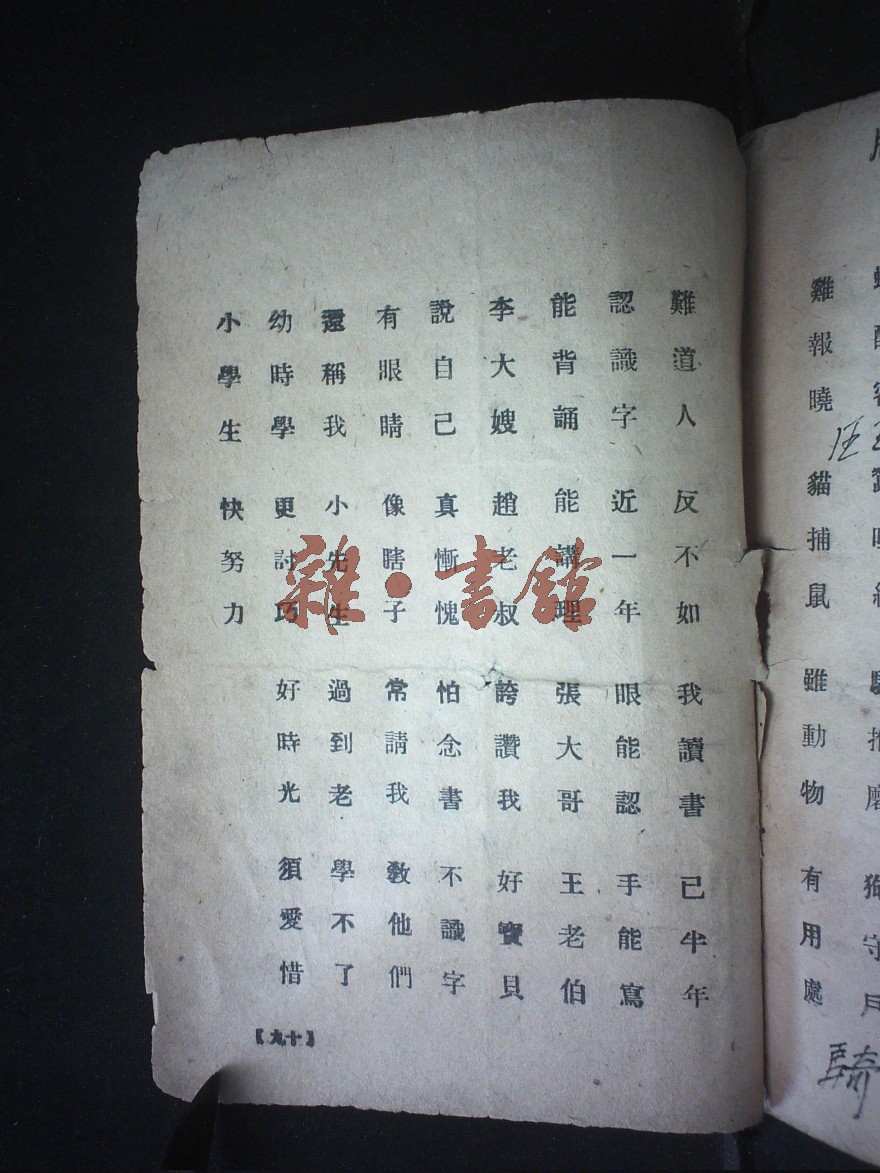 推磨 狗守
雞報曉 貓捕鼠 雖動物 有用處
騎
難道人 反不如 我讀書 已半年
認識字 近一年 眼能認 手能寫
能背誦 能講理 張大哥 王老伯
李大嫂 趙老叔 誇讚我 好寶貝
說自己 真慚愧 怕念書 不識字
有眼睛 像瞎子 常請我 教他們
還稱我 小先生 過到老 學不了
幼時學 更討巧 好時光 須愛惜
小學生 快努力
【十九】
雜·書館